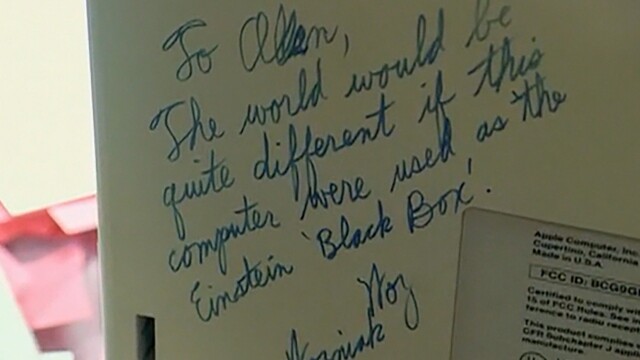 To Allen,
The world would be
quite different if this
computer were used, as the
Einstein 'Black Box'.
Woz
Wozniak
Apple Computer, Inc.
Cupertino, California
Made in U.S.A.
FCC ID: BCG9G
Certified to comply
15 of FCC Rules. See
ference to radio
This product
CFR Subchapter J
manufacture.